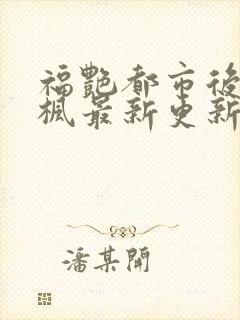 福艷都市後
楓最新更新
潘某開